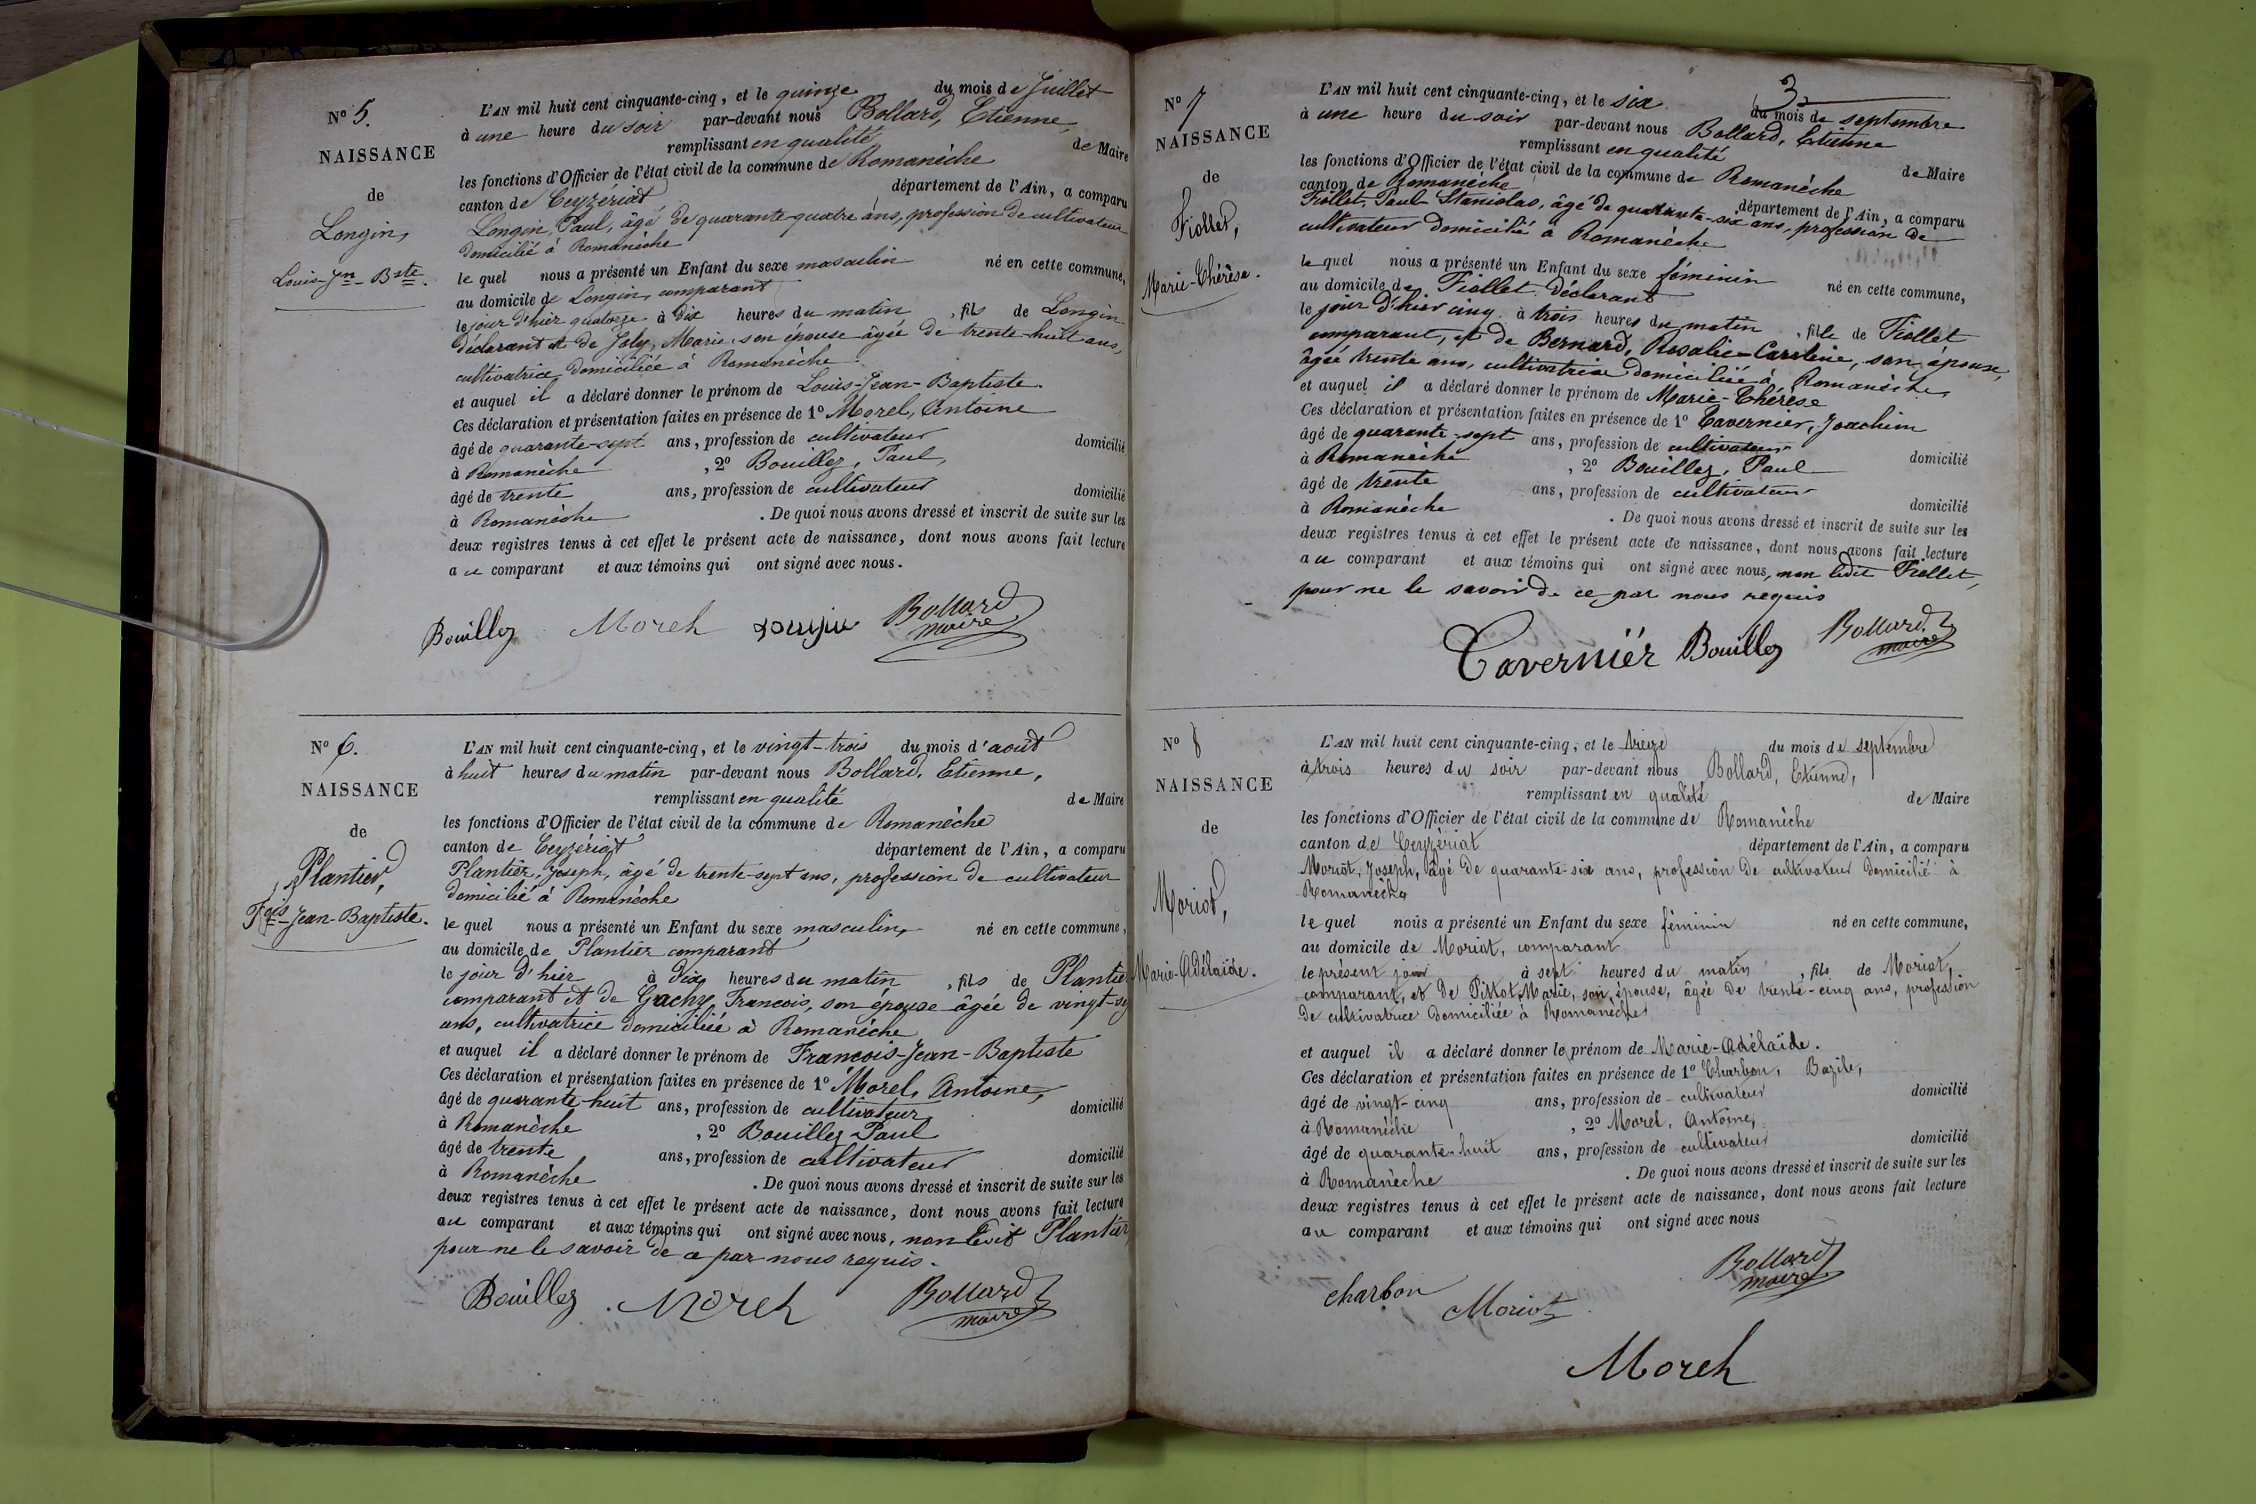 N° 5.
NAISSANCE
de
Longin,
Louis-Jn-Bste.
L'AN mil huit cent cinquante-cinq, et le quinze du mois de Juillet
à une heure du soir par-devant nous Bollard, Etienne,
remplissant en qualité de Maire
les fonctions d'Officier de l'état civil de la commune de Romanèche
canton de Ceyzériat département de l'Ain, a comparu
Longin, Paul, âgé de quarante-quatre ans, profession de cultivateur
domicilié à Romanèche
le quel nous a présenté un Enfant du sexe masculin né en cette commune,
au domicile de Longin, comparant
le jour d'hier quatorze à dix heures du matin, fils de Longin
déclarant et de Joly, Marie, son épouse âgée de trente-huit ans,
cultivatrice domiciliée à Romanèche
et auquel il a déclaré donner le prénom de Louis-Jean-Baptiste.
Ces déclaration et présentation faites en présence de 1° Morel, Antoine
âgé de quarante-sept ans, profession de cultivateur domicilié
à Romanèche, 2° Bouillez, Paul,
âgé de trente ans, profession de cultivateur domicilié
à Romanèche. De quoi nous avons dressé et inscrit de suite sur les
deux registres tenus à cet effet le présent acte de naissance, dont nous avons fait lecture
au comparant et aux témoins qui ont signé avec nous.
Bouillez Morel Bollard
maire
N° 6.
NAISSANCE
de
Plantier,
Fçois-Jean-Baptiste.
L'AN mil huit cent cinquante-cinq, et le vingt-trois du mois d'août
à huit heures du matin par-devant nous Bollard, Etienne,
remplissant en qualité de Maire
les fonctions d'Officier de l'état civil de la commune de Romanèche
canton de Ceyzériat département de l'Ain, a comparu
Plantier, Joseph, âgé de trente-sept ans, profession de cultivateur
domicilié à Romanèche
le quel nous a présenté un Enfant du sexe masculin, né en cette commune,
au domicile de Plantier comparant
le jour d'hier à dix heures du matin, fils de Plantier
comparant et de Gachy, Francois, son épouse âgée de vingt-
ans, cultivatrice domiciliée à Romanèche
et auquel il a déclaré donner le prénom de Francois-Jean-Baptiste
Ces déclaration et présentation faites en présence de 1° Morel, Antoine,
âgé de quarante-huit ans, profession de cultivateur domicilié
à Romanèche, 2° Bouillez Paul
âgé de trente ans, profession de cultivateur domicilié
à Romanèche. De quoi nous avons dressé et inscrit de suite sur les
deux registres tenus à cet effet le présent acte de naissance, dont nous avons fait lecture
au comparant et aux témoins qui ont signé avec nous, non ledit Plantier
pour ne le savoir de ce par nous requis.
Bouillez. Morel Bollard
maire
3
N° 7
NAISSANCE
de
Fiollet,
Marie-Thérèse.
L'AN mil huit cent cinquante-cinq, et le six du mois de septembre
à une heure du soir par-devant nous Bollard, Etienne
remplissant en qualité de Maire
les fonctions d'Officier de l'état civil de la commune de Romanèche
canton de Romanèche département de l'Ain, a comparu
Fiollet, Paul-Stanislas, âgé de quarante-six ans, profession de
cultivateur domicilié à Romanèche
le quel nous a présenté un Enfant du sexe féminin né en cette commune,
au domicile de Fiollet déclarant
le jour d'hier cinq à trois heures du matin, fille de Fiollet
comparant, et de Bernard, Rosalie-Caroline, son épouse,
âgée trente ans, cultivatrice domiciliée à Romanèche
et auquel il a déclaré donner le prénom de Marie-Thérèse
Ces déclaration et présentation faites en présence de 1° Tavernier, Joachim
âgé de quarante-sept ans, profession de cultivateur domicilié
à Romanèche, 2° Bouillez, Paul
âgé de trente ans, profession de cultivateur domicilié
à Romanèche. De quoi nous avons dressé et inscrit de suite sur les
deux registres tenus à cet effet le présent acte de naissance, dont nous avons fait lecture
au comparant et aux témoins qui ont signé avec nous, non ledit Fiollet,
pour ne le savoir de ce par nous requis
Tavernier Bouillez Bollard
maire
N° 8
NAISSANCE
de
Moriot,
Marie-Adélaïde.
L'AN mil huit cent cinquante-cinq, et le treize du mois de septembre
à trois heures du soir par-devant nous Bollard, Etienne,
remplissant en qualité de Maire
les fonctions d'Officier de l'état civil de la commune de Romanèche
canton de Ceyzériat département de l'Ain, a comparu
Moriot, Joseph, âgé de quarante-six ans, profession de cultivateur domicilié à
Romanèche
le quel nous a présenté un Enfant du sexe féminin né en cette commune,
au domicile de Moriot, comparant
le présent jour à sept heures du matin, fils de Moriot,
comparant, et de Marie, son épouse, âgée de trente-cinq ans, profession
de cultivatrice domiciliée à Romanèche
et auquel il a déclaré donner le prénom de Marie-Adélaïde.
Ces déclaration et présentation faites en présence de 1° Charbon, Bazile,
âgé de vingt-cinq ans, profession de cultivateur domicilié
à Romanèche, 2° Morel, Antoine,
âgé de quarante-huit ans, profession de cultivateur domicilié
à Romanèche. De quoi nous avons dressé et inscrit de suite sur les
deux registres tenus à cet effet le présent acte de naissance, dont nous avons fait lecture
au comparant et aux témoins qui ont signé avec nous
Charbon Moriot Bollard
maire
Morel